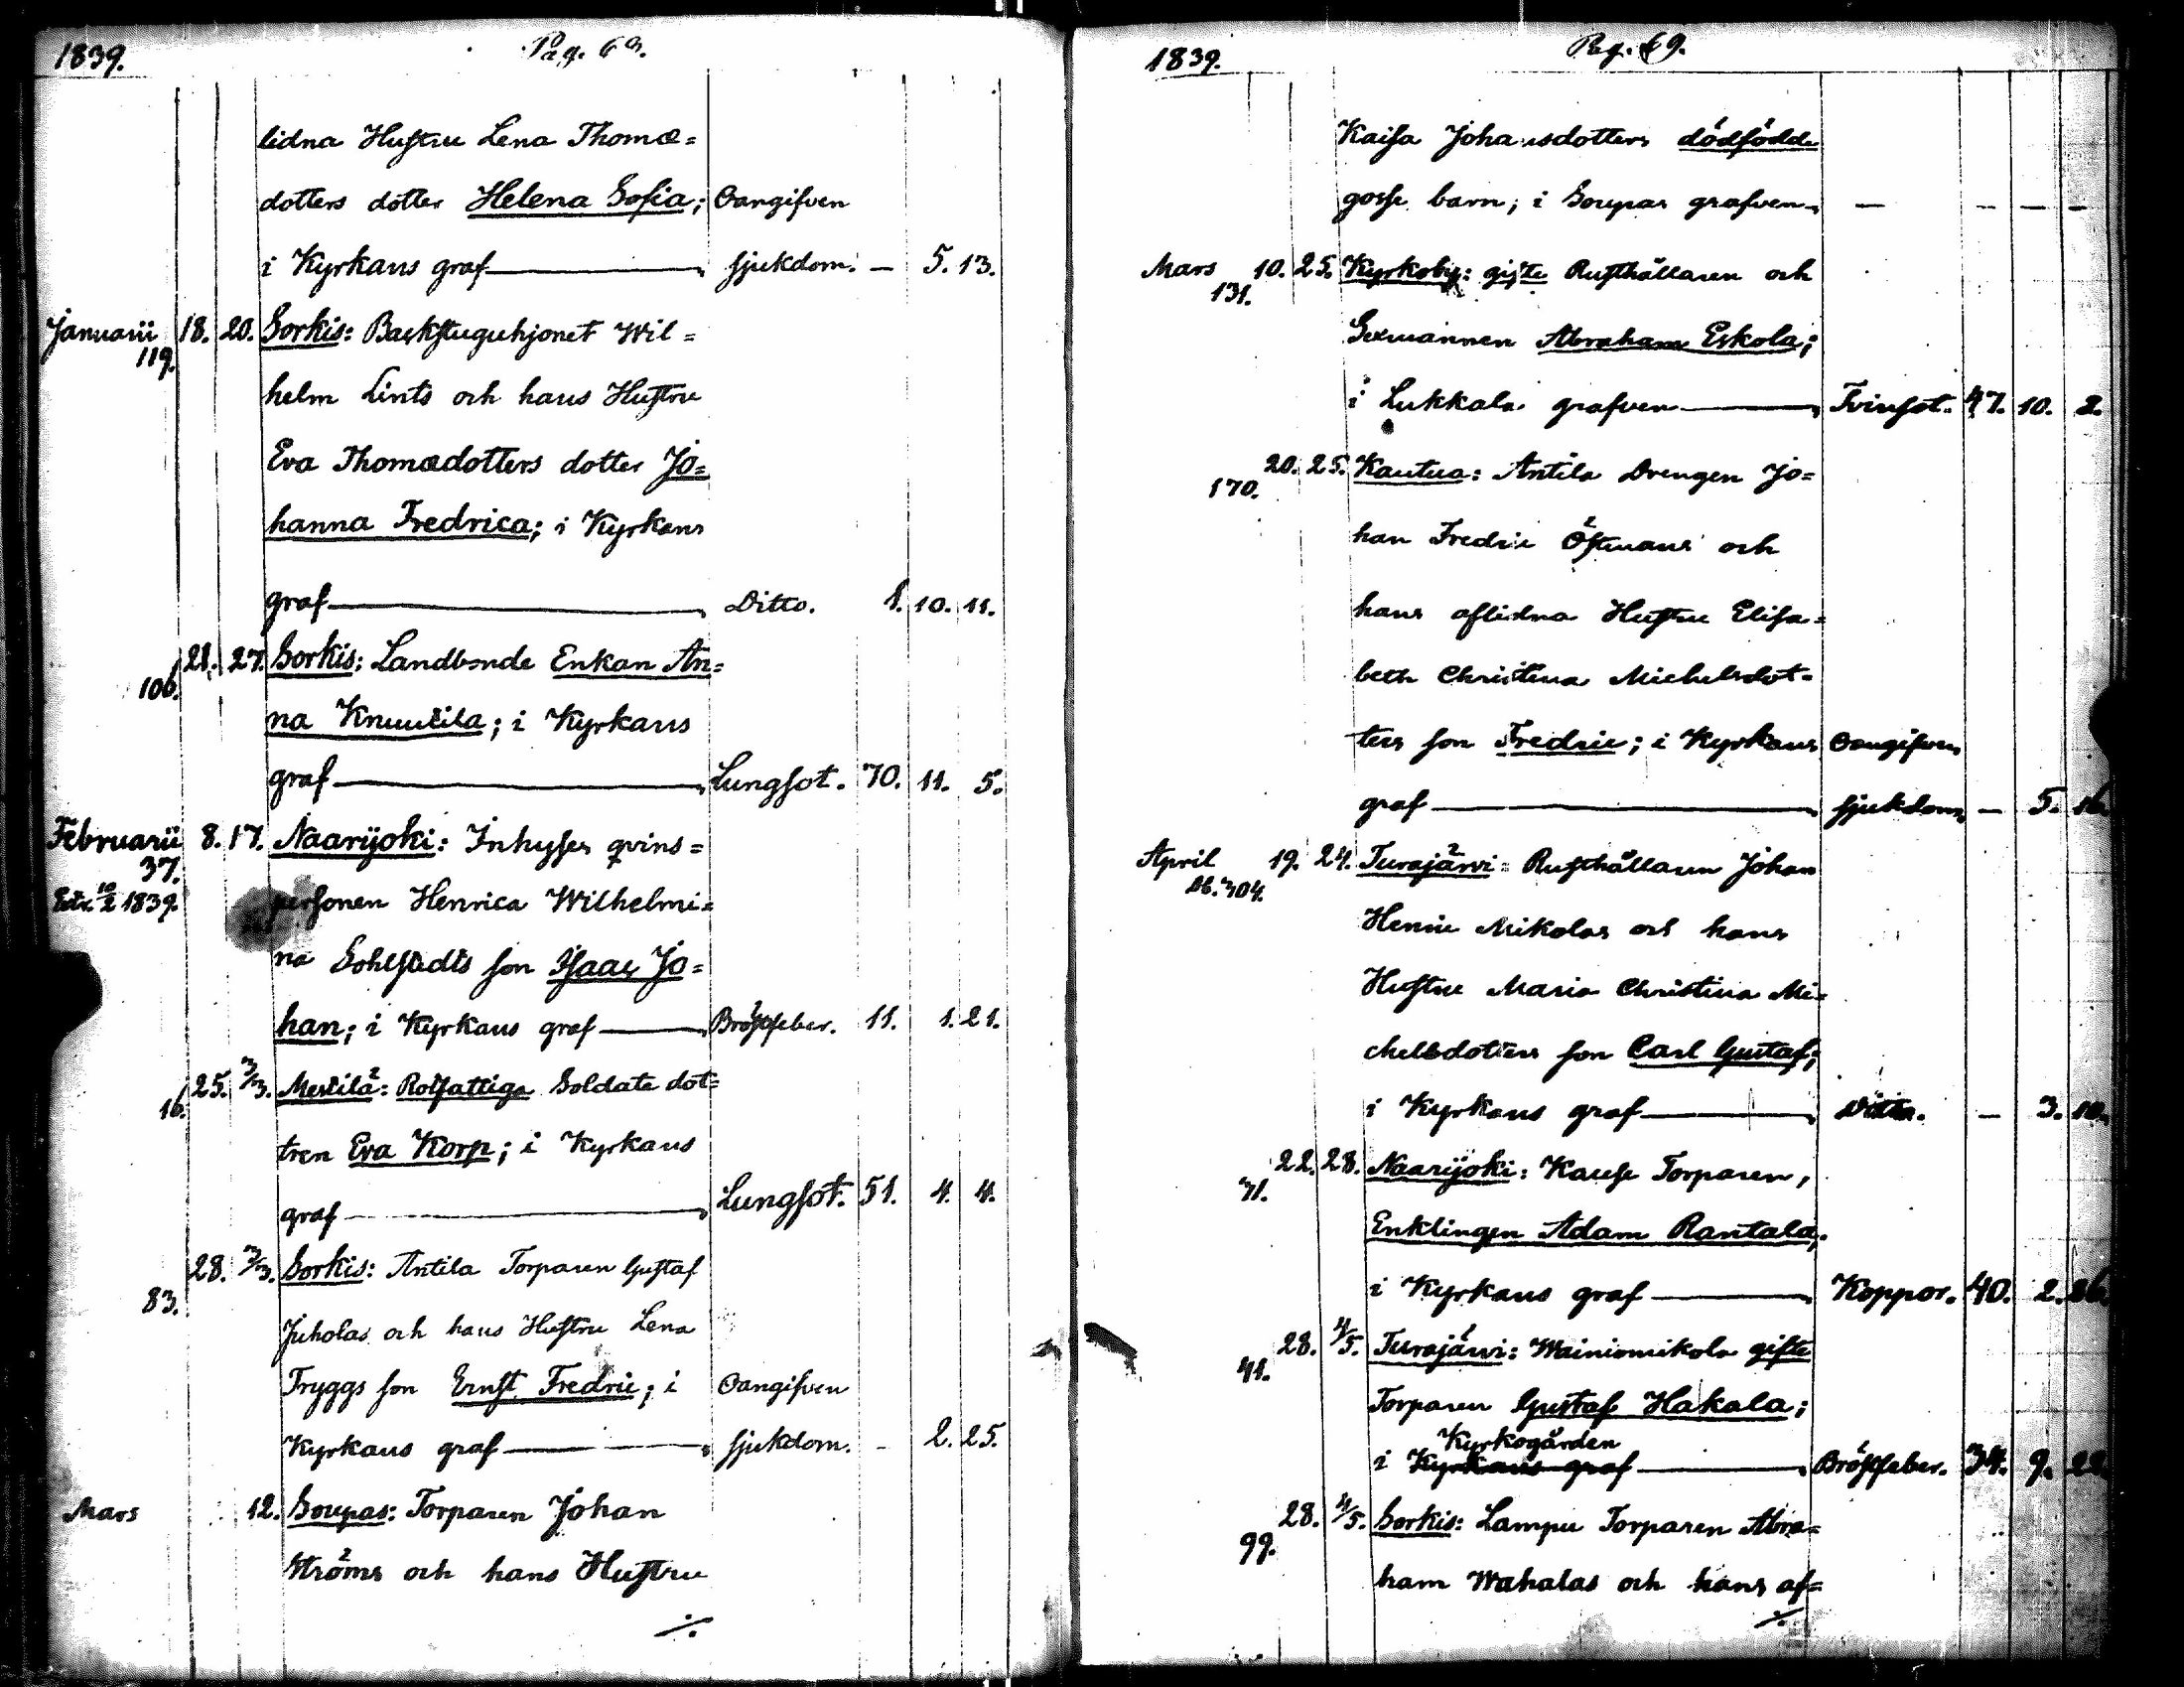 1839. Pag. 68.
lidna Hustru Lena Thomæ=
dotters dotter Helena Sofia; Oangifven
i Kyrkans graf — sjukdom. — 5. 13.
Januarii 18. 20. Sorkis: Backstuguhjonet Wil=
119.
helm Lints och hans Hustru
Eva Thomædotters dotter Jo=
hanna Fredrica; i Kyrkans
graf — Ditto. 1. 10. 11.
21. 27. Sorkis: Landbonde Enkan An=
106.
na Knuutila; i Kyrkans
graf — Lungsot. 70. 11. 5.
Februarii 8. 17. Naarijoki: Inhyses qvins=
37.
10/2 1839. personen Henrica Wilhelmi=
na Sohlstedts son Isaac Jo=
han; i Kyrkans graf — Bröstfeber. 11. 1. 21.
25. 3/3. Mestilä: Rotfattiga Soldate dot=
16.
tren Eva Korp; i Kyrkans
graf — Lungsot. 51. 4. 4.
28. 3/3. Sorkis: Antila Torparen Gustaf
83.
Juholas och hans Hustru Lena
Tryggs son Ernst Fredric; i Oangifven
Kyrkans graf — sjukdom. — 2. 25.
Mars 12. Soupas: Torparen Johan
Ströms och hans Hustru
./.
1839. Pag. 69.
Kaisa Johansdotters dödfödde
gosse barn; i Soupas grafven — — — — —
Mars 10. 25. Kyrkoby: gifte Rusthållaren och
131.
Sexmannen Abraham Eskola;
i Lukkala grafven — Tvinsot. 47. 10. 2.
20. 25. Kautua: Antila Drengen Jo=
170.
han Fredric Östmans och
hans aflidna Hustru Elisa=
beth Christina Michelsdot=
ters son Fredric; i Kyrkans Oangifven
graf — sjukdom. — 5. 16.
April 19. 24. Turajärvi: Rusthållaren Johan
Henric Mikolas och hans
Hustru Maria Christina Mi=
chelsdotters son Carl Gustaf;
i Kyrkans graf — Ditto. — 3. 10.
22. 28. Naarijoki: Kause Torparen,
71.
Enklingen Adam Rantala;
i Kyrkans graf — Koppor. 40. 2. 26.
28. 4/5. Turajärvi: Wainiomikola gifte
41.
Torparen Gustaf Hakala;
Kyrkogården
i Kyrkans graf — Bröstfeber. 34. 9. 22.
28. 4/5. Sorkis: Lampu Torparen Abra=
99.
ham Wahalas och hans af=
./.